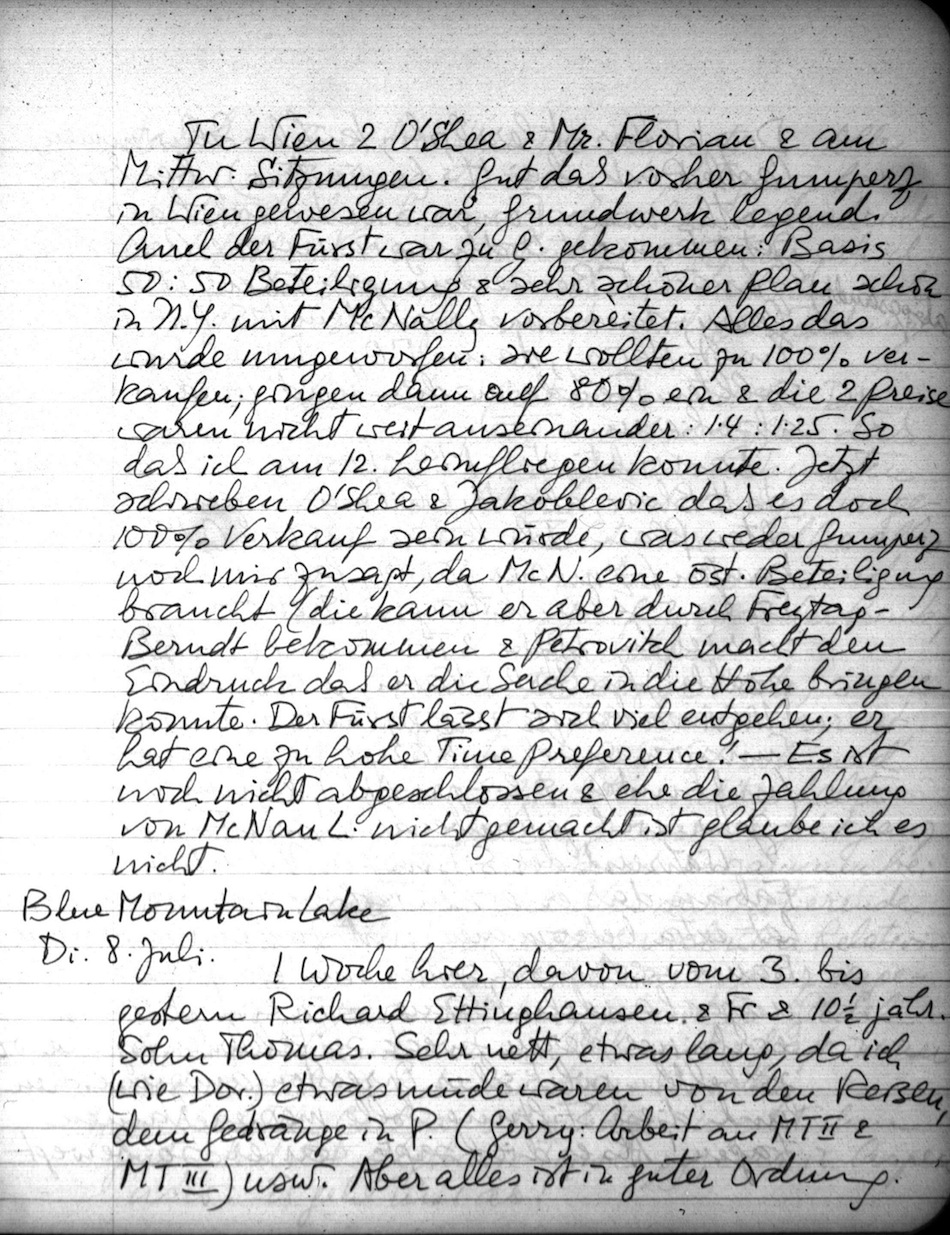 In Wien 2 O'Shea & Mr. Florian & am
Mittw. Sitzungen. Gut das vorher Gumperz
in Wien gewesen war, grundwerk legend.
Auch der Fürst war zu G. gekommen: Basis
50:50 Beteiligung & sehr schöner Plan schon
in N.Y. mit McNally vorbereitet. Alles das
wurde umgeworfen: sie wollten zu 100% ver-
kaufen; gingen dann auf 80% ein & die 2 Preise
waren nicht weit auseinander: 1.4 : 1.25. So
das ich am 12. heimfliegen konnte. Jetzt
schrieben O'Shea & Jakoblevic das es doch
100% Verkauf sein würde, was weder Gumperz
noch mir zusagt, da McN. eine öst. Beteiligung
braucht (die kann er aber durch Freytag-
Berndt bekommen & Petrovitch macht den
Eindruck das er die Sache in die Höhe bringen
könnte. Der Fürst lässt sich viel entgehen; er
hat eine zu hohe Time Preference! — Es ist
noch nicht abgeschlossen & ehe die Zahlung
von McNall. nicht gemacht ist glaube ich es
nicht.
Blue Mountain Lake
Di. 8. Juli.
1 Woche hier, davon vom 3. bis
gestern Richard Ettinghausen & Fr & 10½ jähr.
Sohn Thomas. Sehr nett, etwas lang, da ich
(wie Dor.) etwas müde waren von den Reisen,
dem Gedränge in P. (Gerry: Arbeit an MT II &
MT III) usw. Aber alles ist in guter Ordnung.